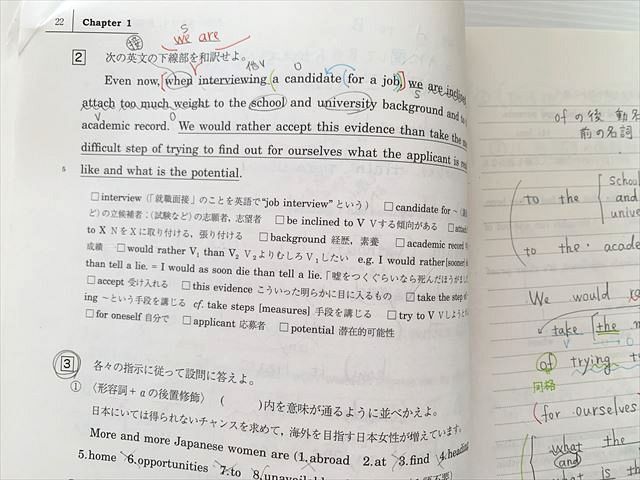 22 Chapter 1
S
we are
接
2 次の英文の下線部を和訳せよ。
他V O
Even now, [when interviewing (a candidate (for a job)] we are inclined
S
attach too much weight to the school and university background and to
V O
academic record. We would rather accept this evidence than take the
difficult step of trying to find out for ourselves what the applicant is
5 like and what is the potential.
□ interview (「就職面接」のことを英語で“job interview” という) □ candidate for ~
どの)立候補者:(試験など)の志願者, 志望者 □ be inclined to V Vする傾向がある □
to X NをXに取り付ける, 張り付ける □ background 経歴, 素養 □ academic record
成績 □ would rather V₁ than V₂ V₂よりむしろV₁したい e.g. I would rather [sooner]
than tell a lie. = I would as soon die than tell a lie. 「嘘をつくぐらいなら死んだほうが
□ accept 受け入れる □ this evidence こういった明らかに目に入るもの □ take the step of
ing ~という手段を講じる cf. take steps [measures] 手段を講じる □ try to V Vしようと
□ for oneself 自分で □ applicant 応募者 □ potential 潜在的可能性
3 各々の指示に従って設問に答えよ。
① 〈形容詞+αの後置修飾〉 ( )内を意味が通るように並べかえよ。
日本にいては得られないチャンスを求めて, 海外を目指す日本女性が増えています。
More and more Japanese women are (1.abroad 2.at 3.find 4.heading
5.home 6.opportunities 7.to
ofの後 動名
前の名詞
to the school
and
to the acade
We would
take the
of trying
同格
(for ourselves
what the
and
what is the